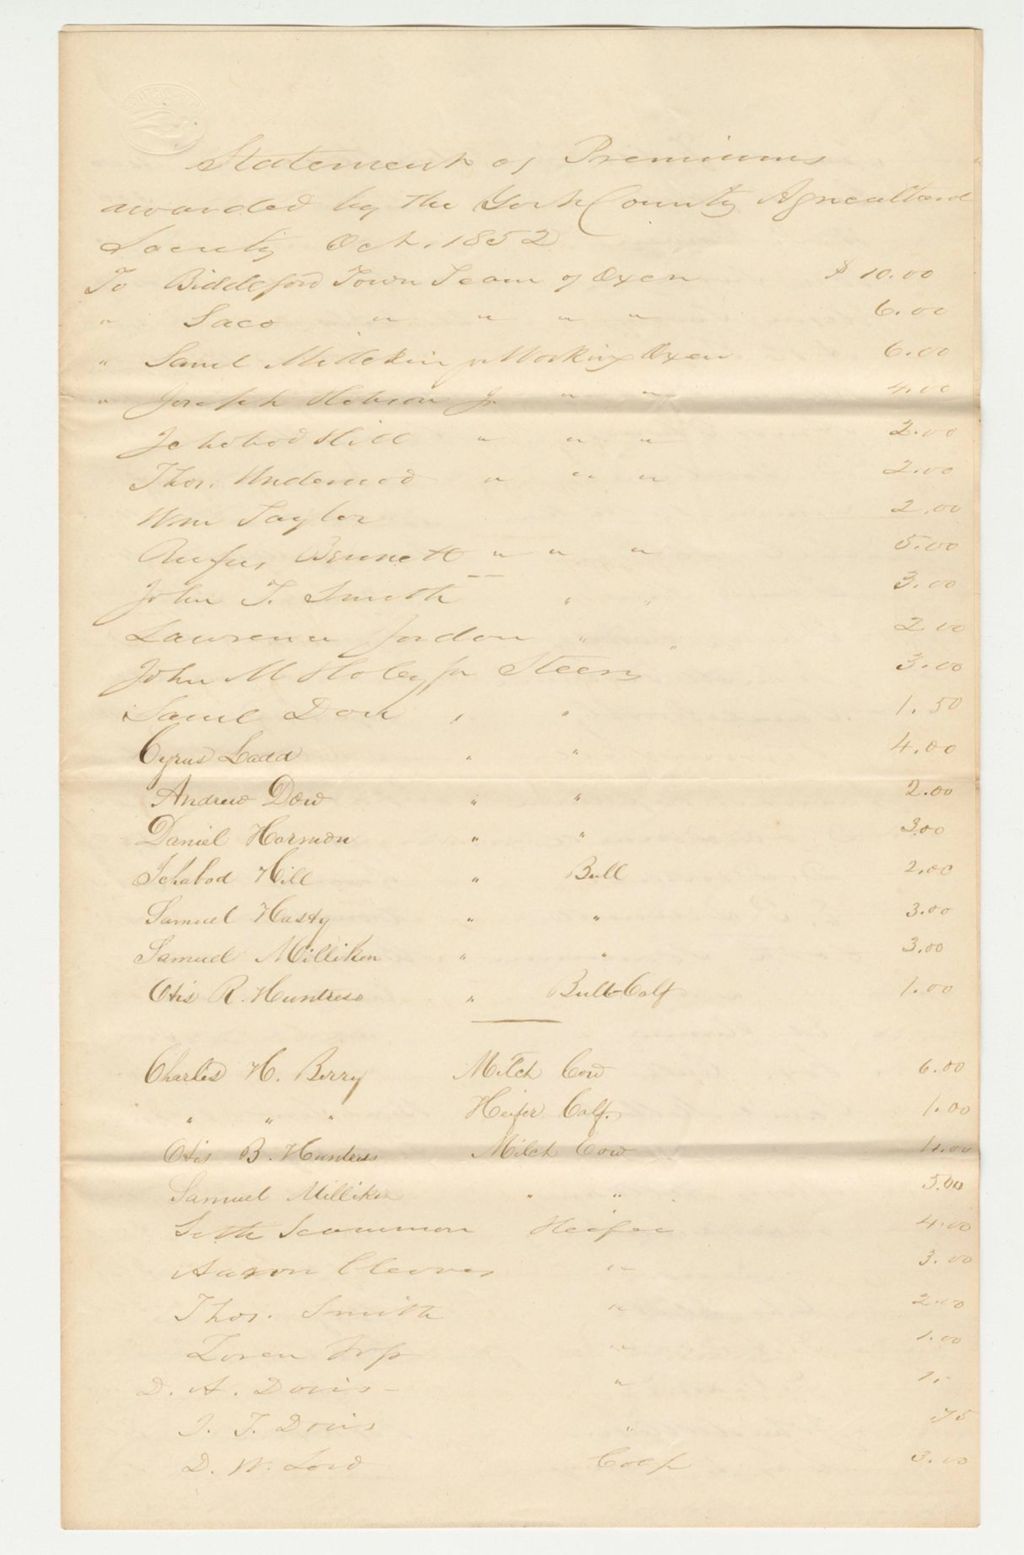 Statement of Premiums
awarded by the York County Agricultural
Society Oct. 1852
To Biddeford Town Team of Oxen $ 10.00
" Saco " " " " 6.00
" Saml Milliken for Working Oxen 6.00
" Joseph Hobson Jr " " 4.00
Ichabod Hill " " " 2.00
Thos. Underwood " " " 2.00
Wm Taylor 2.00
Rufus Bennett " " " 5.00
John T. Smith " " 3.00
Lawrence Jordon " " 2.00
John M for Steers 3.00
Saml Dow " " 1.50
Cyrus Ladd " " 4.00
Andrew Dow " " 2.00
Daniel Harmon " " 3.00
Ichabod Hill " Bull 2.00
Samuel Hasty " " 3.00
Samuel Milliken " " 3.00
Otis R. Huntress " Bull-Calf 1.00
Charles H. Berry Milch Cow 6.00
" " " Heifer Calf. 1.00
Otis B. Huntress Milch Cow 4.00
Samuel Milliken " " 3.00
Seth Scammon Heifer 4.00
Aaron Cleaves " 3.00
Thos. Smith " 2.00
Loren " 1.00
D. A. Davis - " 1.-
J. T. Davis " .75
D. W. Lord Calf 3.00